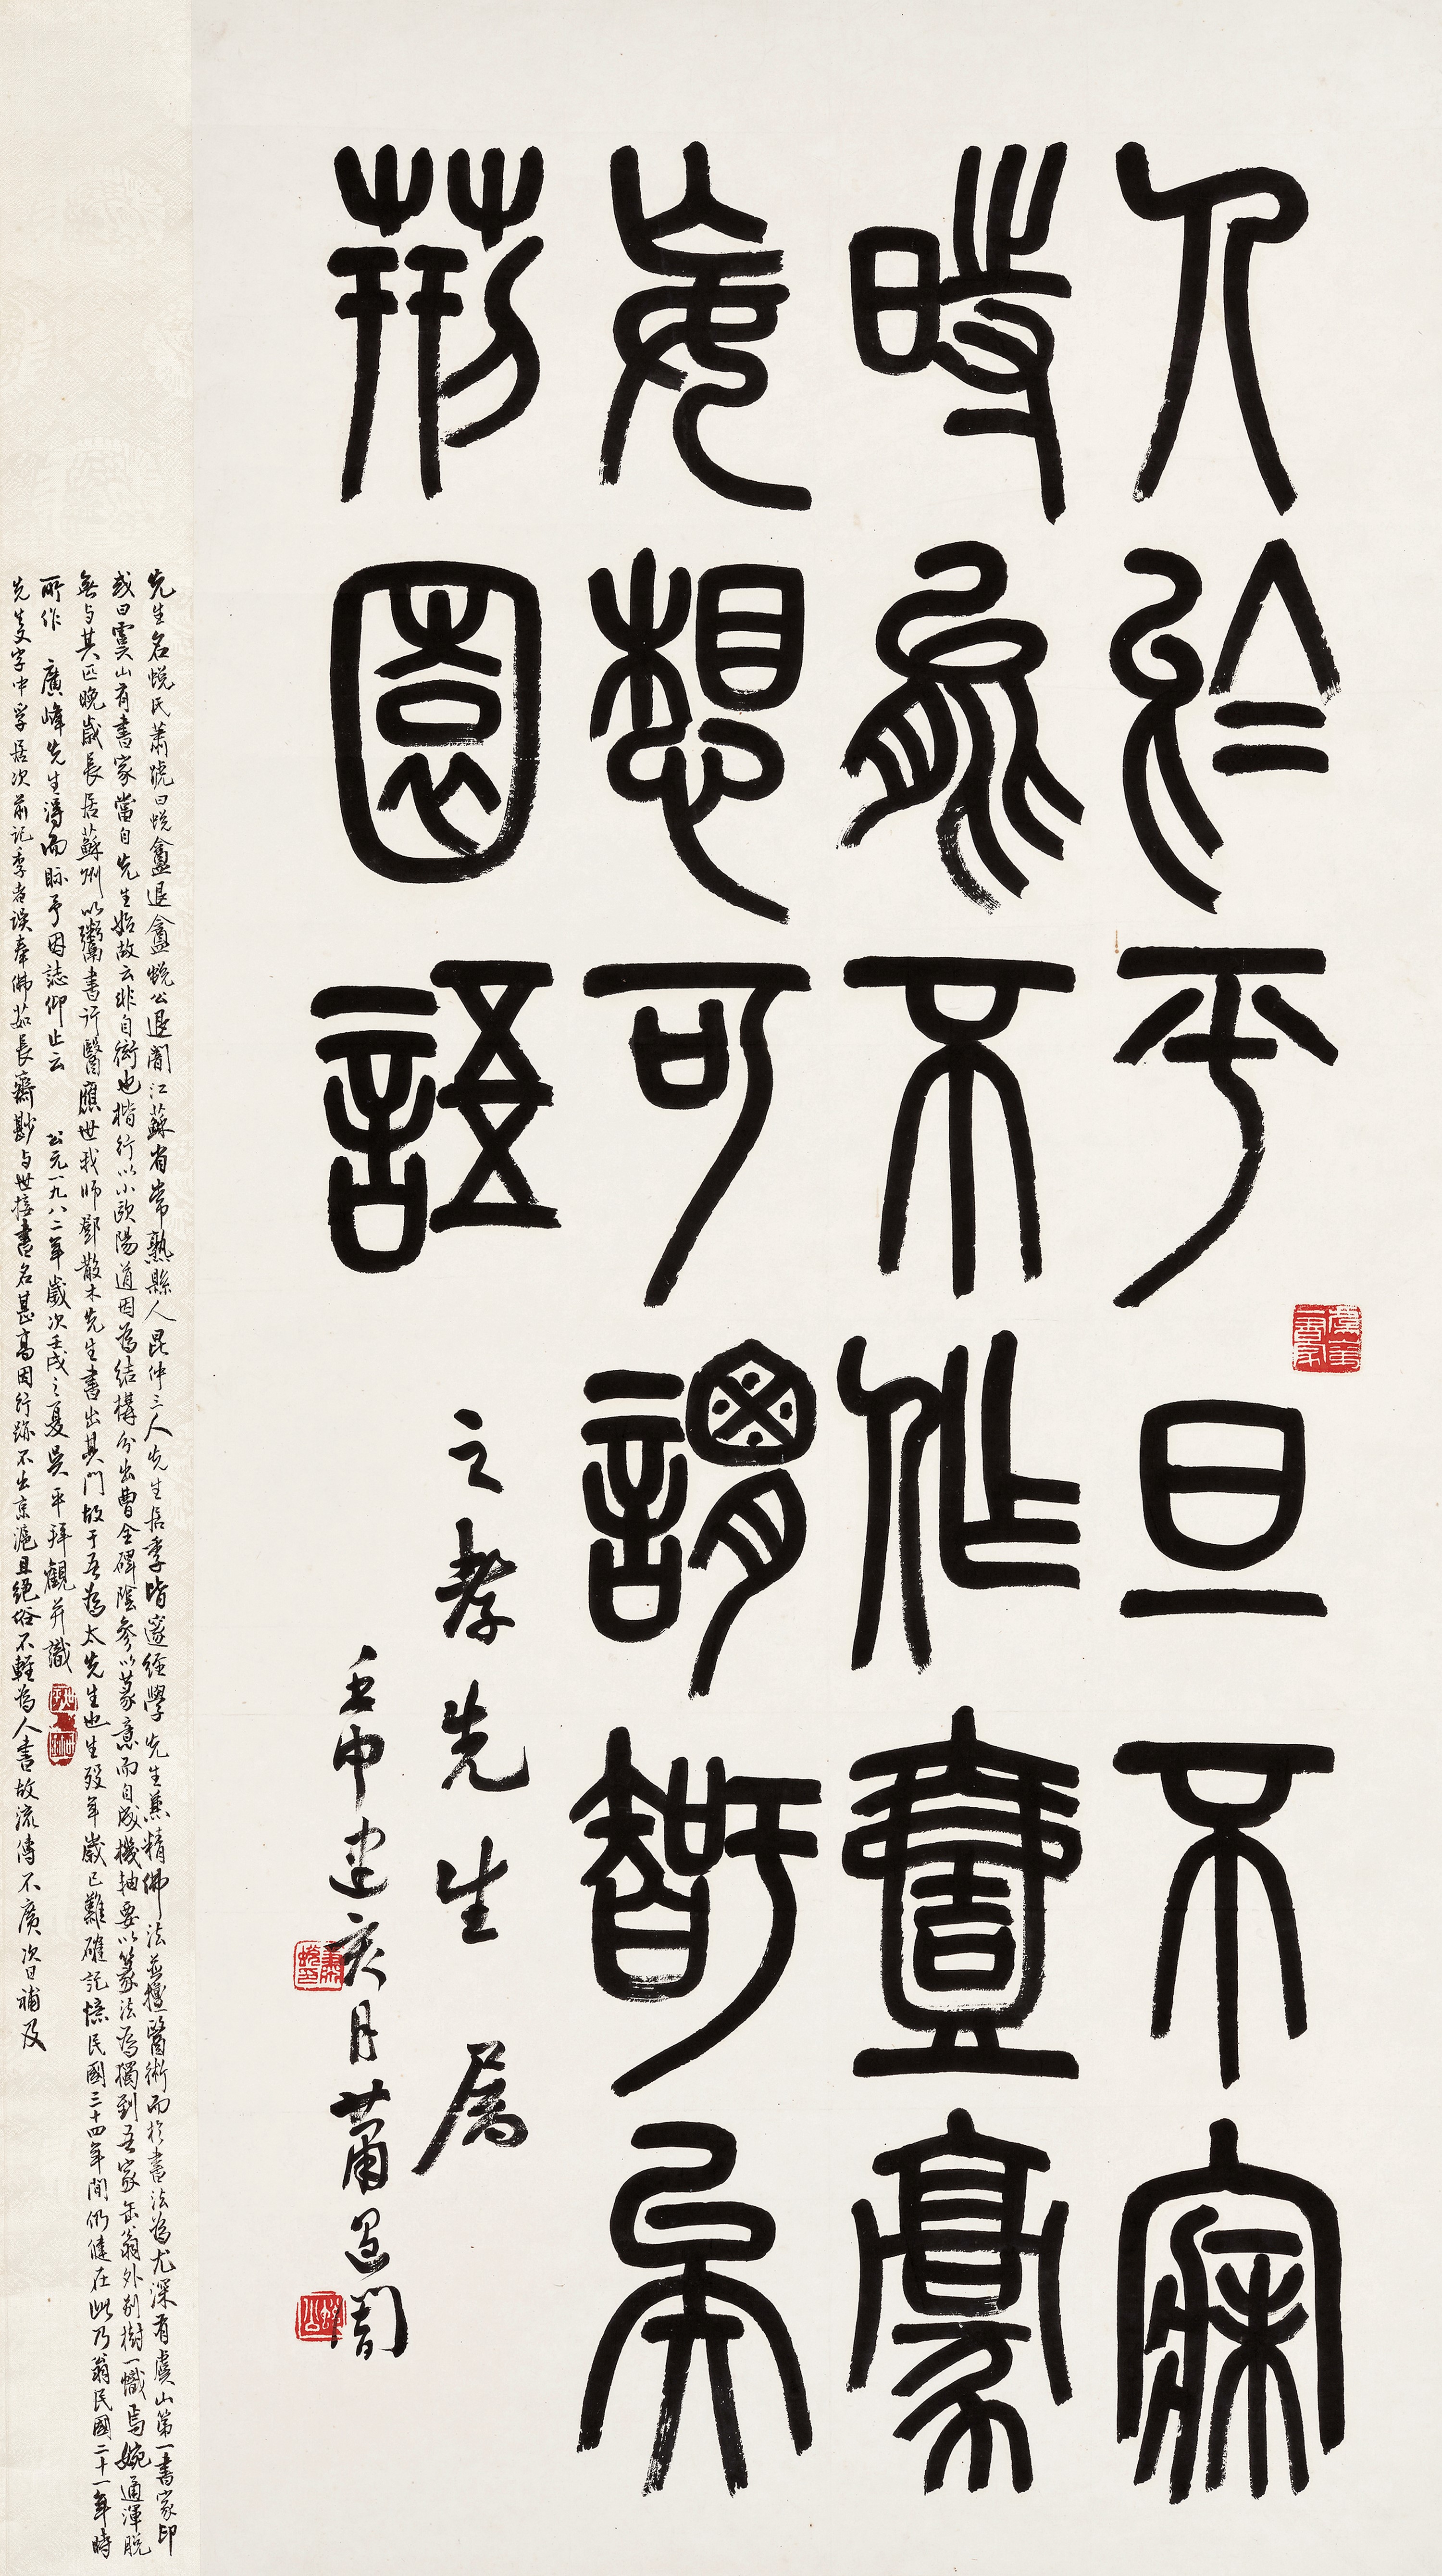 人於平旦不寐
時能不作一豪
妄想可謂智矣
荊園語
之孝先生屬
壬申建亥月蕭退闇
先生名蛻氏蕭號曰蛻盦退盦蛻公退闇江蘇省常熟縣人昆仲三人先生居季皆邃經學先生兼精佛法並擅醫術而於書法為尤深有虞山第一書家印
或曰虞山有書家當自先生始故云非自衒也楷行以小歐陽道因為結構分出曹全碑陰參以篆意而自成機軸要以篆法為獨到吾家缶翁外別樹一幟焉婉通渾脫
無与其匹晚歲長居蘇州以鬻書行醫應世我師鄧散木先生書出其門故于吾為太先生也生歿年歲已難確記憶民國三十四年間仍健在此乃翁民國二十一年時
所作 廣峰先生得而眎予因誌仰止云 公元一九八二年歲次壬戌之夏吳平拜觀并識
先生又字中孚居次前記季者誤奉佛茹長齋尠与世接書名甚高因行跡不出京滬且絕俗不輕為人書故流傳不廣次日補及